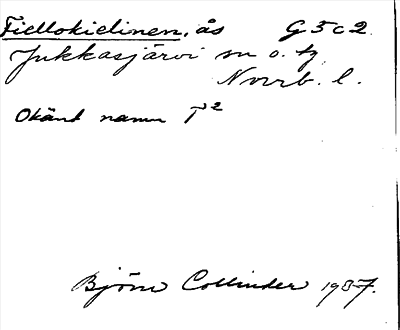 Fiellokielinen, ås G5c2
Jukkasjärvi sn o. tg
Norrb. l.
Okänt namn T²
Björn Collinder 1937.